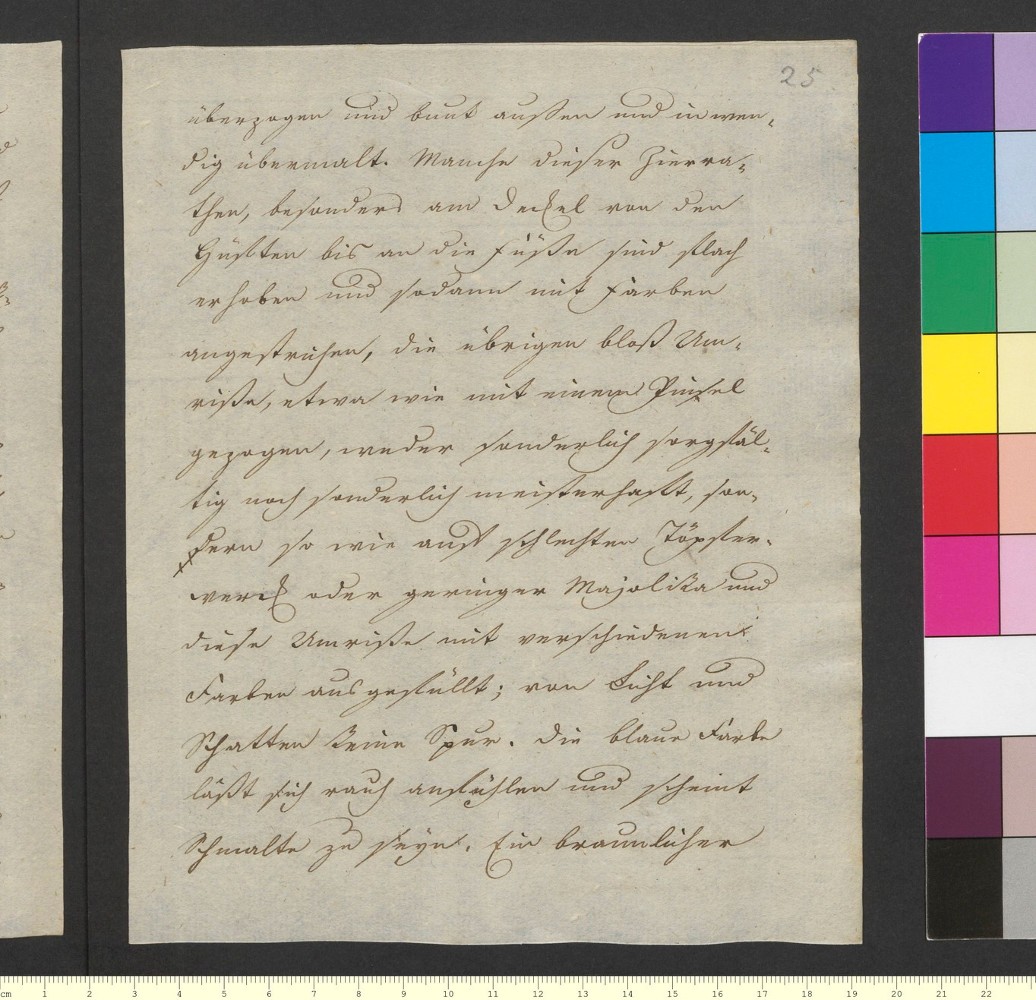 25
überzogen und bunt außen und inwen-
dig übermalt. Manche dieser Zierra-
then, besonders am Deckel von den
Hüfften bis an die Füße sind flach
erhoben und sodann mit Farben
angestrichen, die übrigen bloß Um-
riße, etwa wie mit einem Pinsel
gezogen, weder sonderlich sorgfäl-
tig noch sonderlich meisterhafft, son-
dern so wie auf schlechten Töpfer-
werck oder geringer Majolika und
diese Umriße mit verschiedenen
Farben ausgefüllt; von Licht und
Schatten keine Spur. Die blaue Farbe
läßt sich rauh anfühlen und scheint
Schmalte zu seyn. Ein braunlicher
cm 1 2 3 4 5 6 7 8 9 10 11 12 13 14 15 16 17 18 19 20 21 22